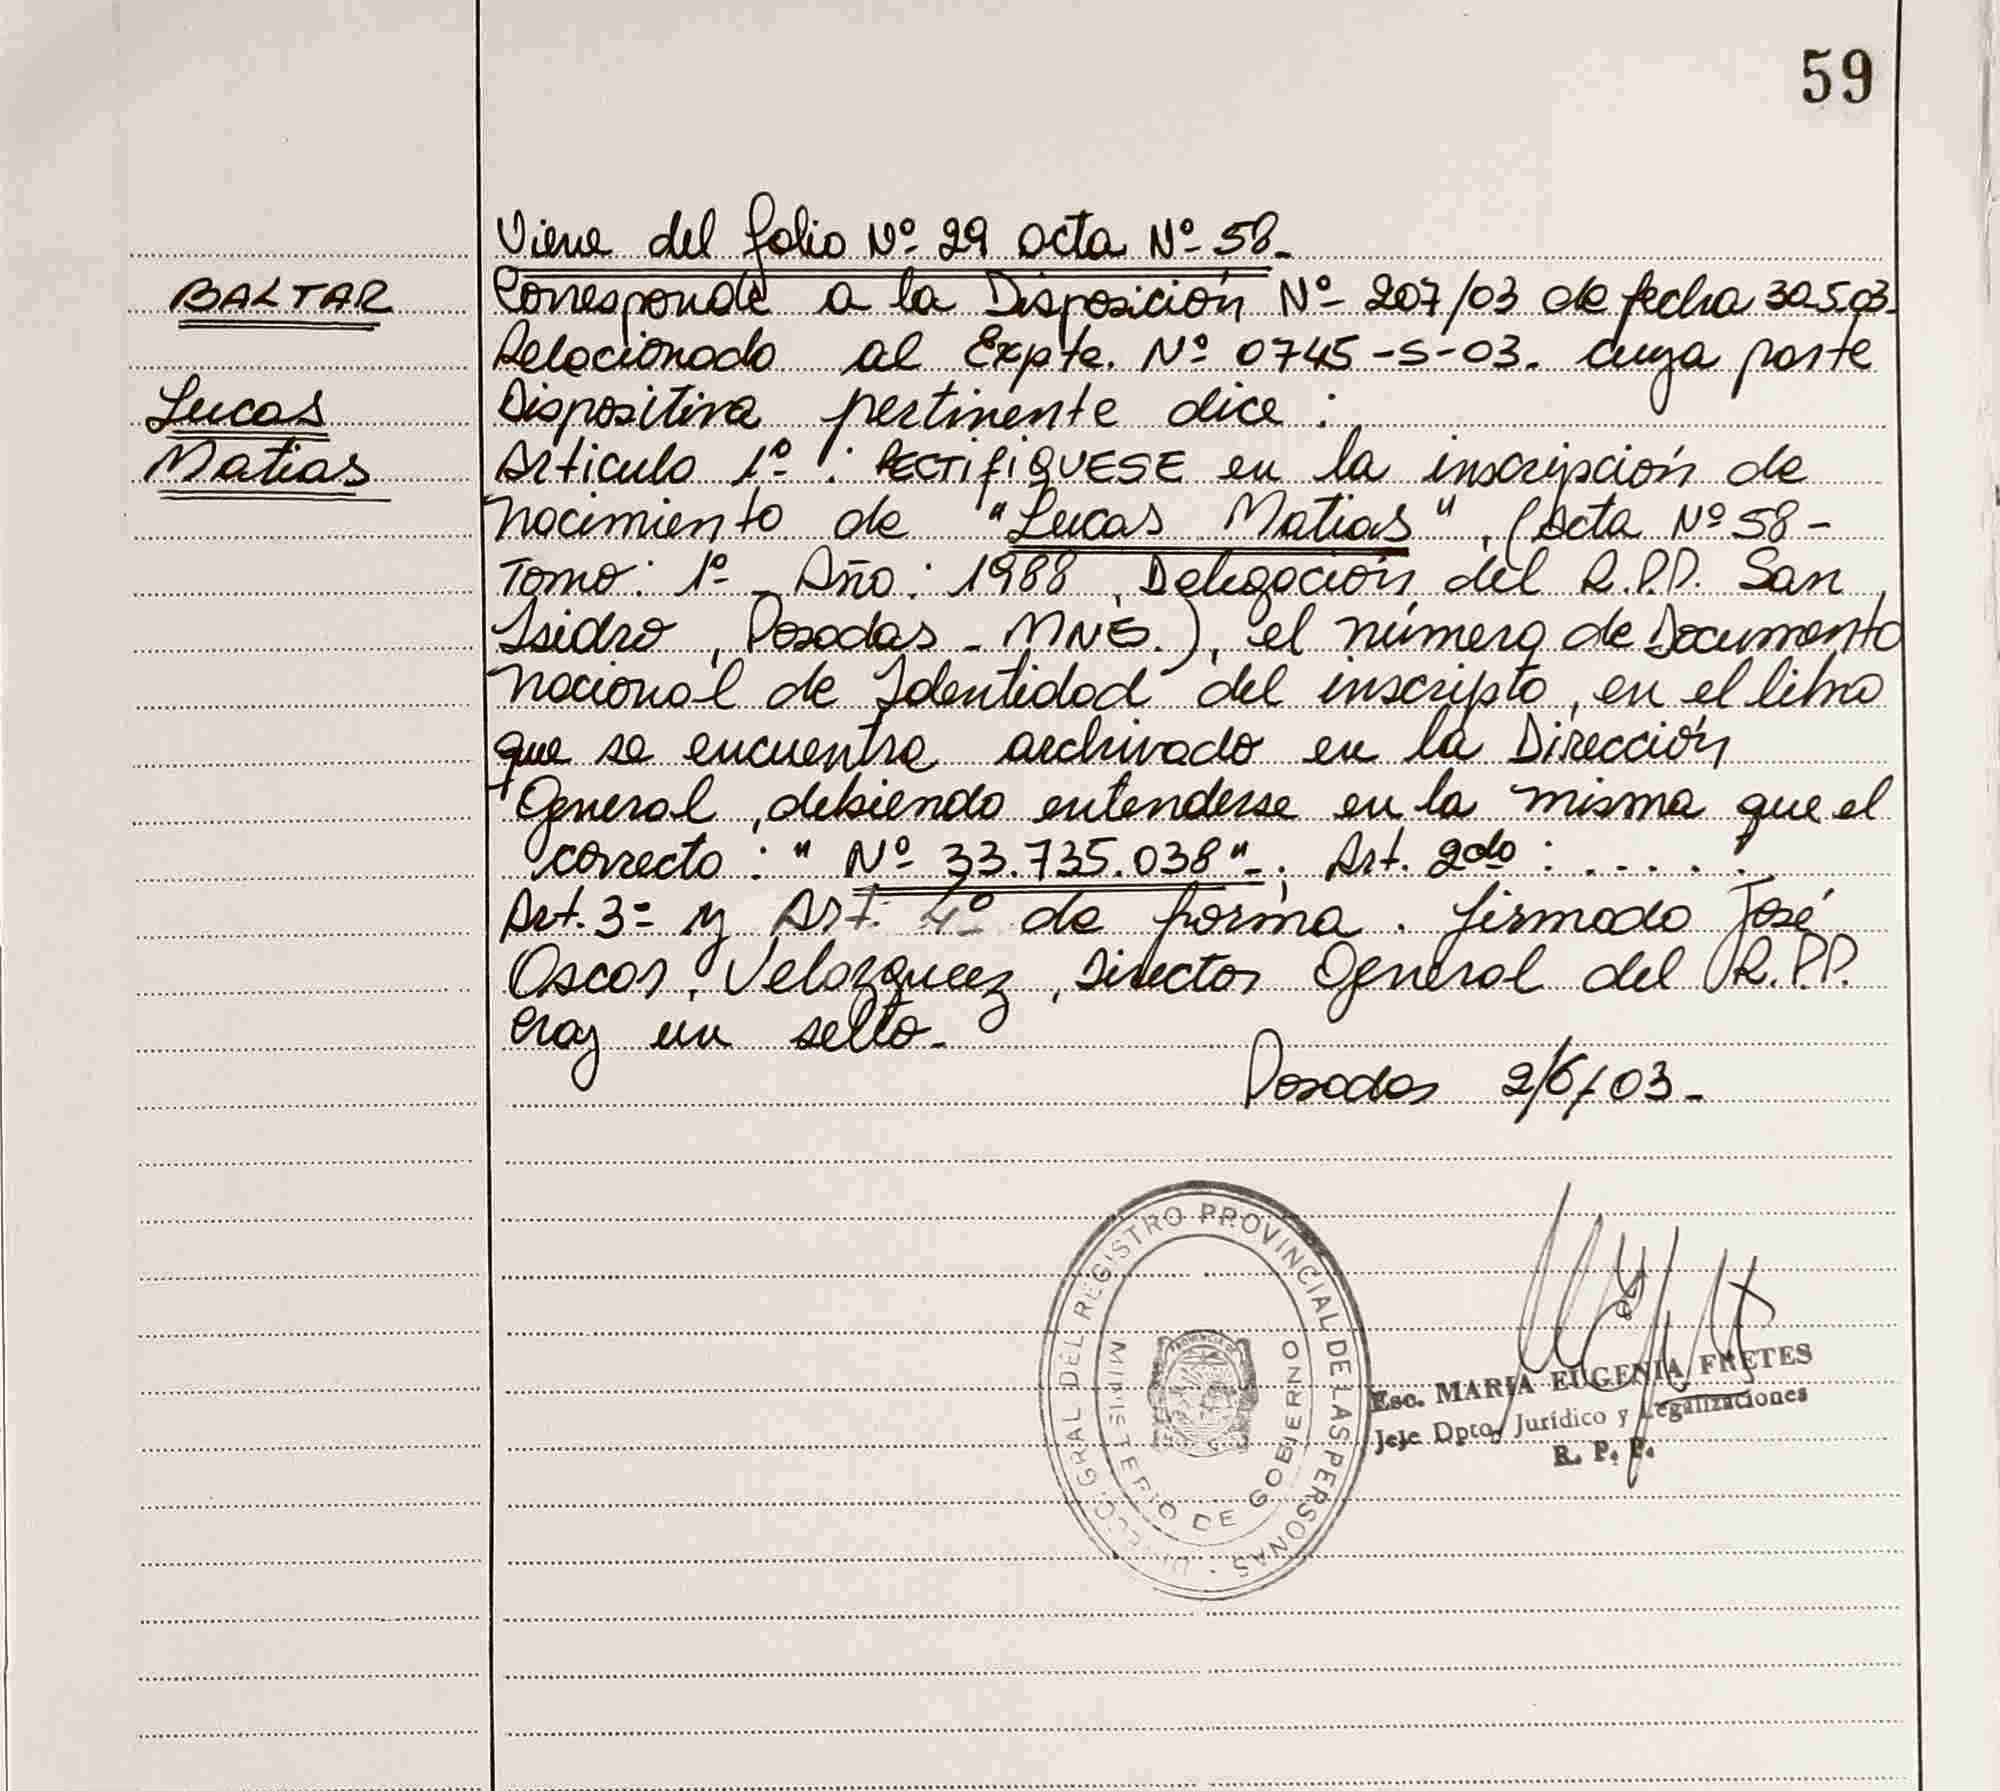 59
Viene del folio Nº 29 acta Nº 58.
BALTAR
Lucas
Matias
Corresponde a la Disposición Nº 207/03 de fecha 30.5.03.
Relacionado al Expte. Nº 0745-S-03. cuya parte
Dispositiva pertinente dice :
Articulo 1º : RECTIFIQUESE en la inscripción de
nacimiento de "Lucas Matias", (acta Nº 58-
Tomo: 1º- Año: 1988, Delegación del R.P.P. San
Isidro, Posadas - MNES.), el número de Documento
nacional de Identidad del inscripto, en el libro
que se encuentra archivado en la Dirección
General, debiendo entenderse en la misma que el
correcto : " Nº 33.735.038"-; Art. 2do : . . . . .
Art. 3º y Art. 4º de forma. firmado José
Oscar Velazquez, Director General del R.P.P.
Hay un sello-
Posadas 2/6/03-
DIRECC. GRAL DEL REGISTRO PROVINCIAL DE LAS PERSONAS
MINISTERIO DE GOBIERNO
Esc. MARIA EUGENIA FRETES
Jefe Dpto. Jurídico y Legalizaciones
R. P. P.